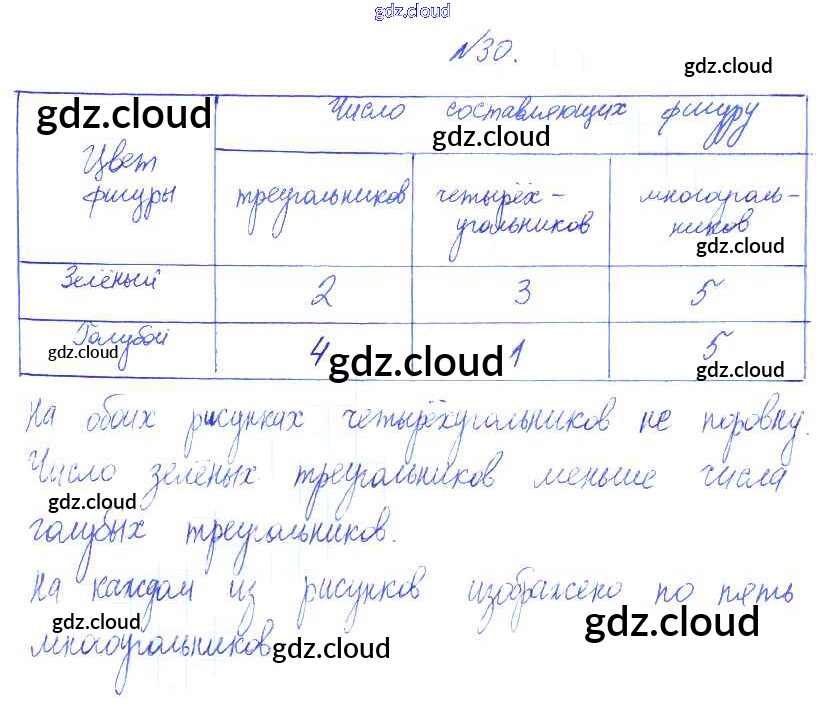 gdz.cloud
gdz.cloud
№30.
gdz.cloud
gdz.cloud
Число составляющих фигуру
gdz.cloud
Цвет
фигуры
треугольников
четырёх-
угольников
многоуголь-
ников
gdz.cloud
Зелёный 2 3 5
Голубой 4 1 5
gdz.cloud
gdz.cloud
gdz.cloud
На обоих рисунках четырёхугольников не поровну.
Число зелёных треугольников меньше числа
gdz.cloud
gdz.cloud
голубых треугольников.
На каждом из рисунков изображено по пять
gdz.cloud
многоугольников
gdz.cloud